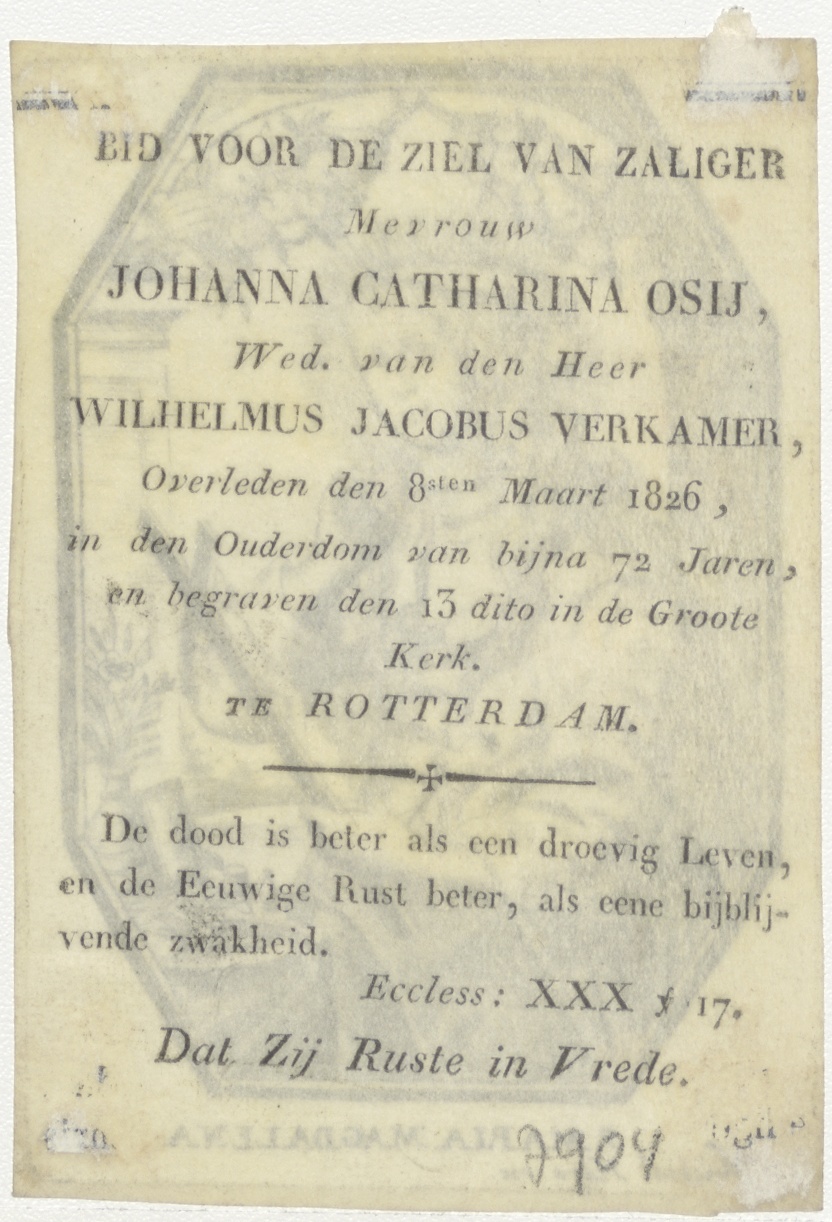 BID VOOR DE ZIEL VAN ZALIGER
Mevrouw
JOHANNA CATHARINA OSIJ,
Wed. van den Heer
WILHELMUS JACOBUS VERKAMER,
Overleden den 8sten Maart 1826,
in den Ouderdom van bijna 72 Jaren,
en begraven den 13 dito in de Groote
Kerk.
TE ROTTERDAM.
De dood is beter als een droevig Leven,
en de Eeuwige Rust beter, als eene bijblij-
vende zwakheid.
Eccless: XXX ℣ 17.
Dat Zij Ruste in Vrede.
MARIA MAGDALENA
7904